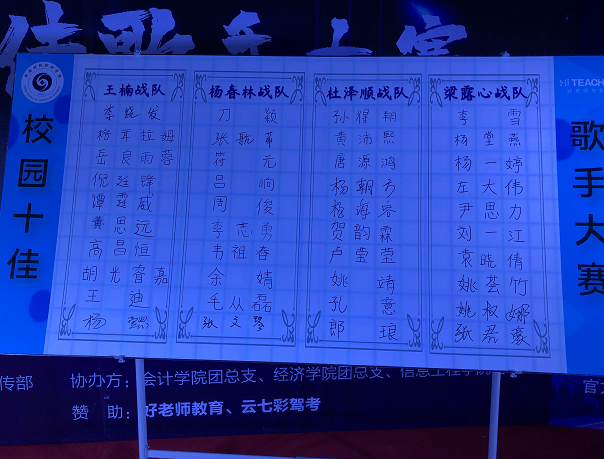 Hi TEACH
校园十佳
歌手大赛
王楠战队
李 发
岳良雨蓉
倪 锋
谭霆威
黄思远
高昌恒
胡光睿嘉
王迪
杨
杨春林战队
刀颖
张航
符元
吕
周俊
李志勇
韦祖春
余婧
毛从磊
张文琴
杜泽顺战队
孙 翔
黄沛熙
唐源鸿
杨朝方
杨海容
贺韵霖
卢莹莹
姚靖
孔意
郎琅
梁露心战队
李雪
杨堂燕
杨一婷
左大伟
尹思力
刘一江
袁晓倩
姚荟竹
姚权娜
张君豪
传部
协办方：会计学院团总支、经济学院团总支、信息工程学院
赞 助：好老师教育、云七彩驾考
官方